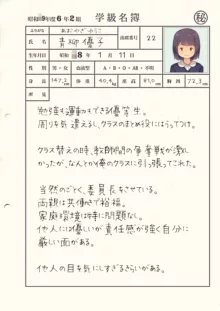 昭和59年度6年2組 学級名簿 秘
あおやぎ ゆうこ
氏名 青柳優子 出席番号 22
生年月日 昭和 8年1月11日
身長 147.2 cm 体重 40.4 kg 座高 81.0 cm 胸囲 72.3 cm
勉強も運動もできる優等生。
周りを気遣えるし、クラスのまとめ役にはうってつけ。
クラス替えの時、教師間の争奪戦が激し
かったが、なんとか俺のクラスに引っ張ってこれた。
当然のごとく、委員長をさせている。
両親は共働きで裕福。
家庭環境は特に問題なし。
他人には優しいが責任感が強く自分に
厳しい面がある。
他人の目を気にしすぎるきらいがある。